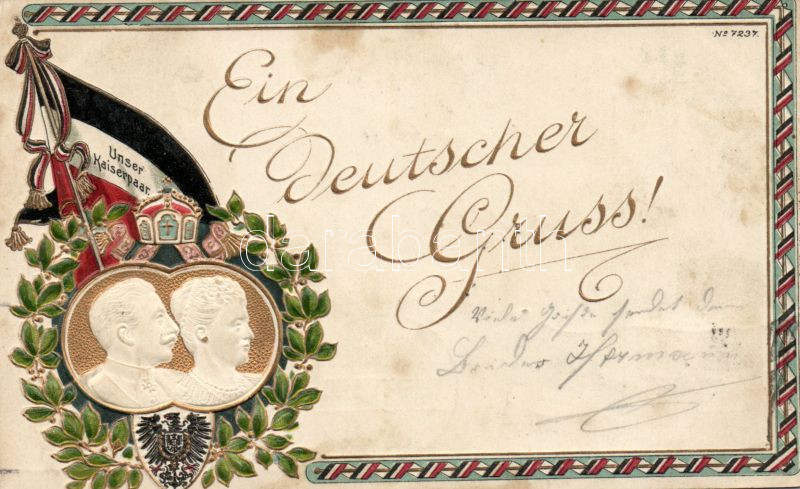 No 7237.
Ein
Deutscher
Gruss!
Unser
Kaiserpaar.
darabanth
Viele Grüße sendet dein
Bruder Hermann